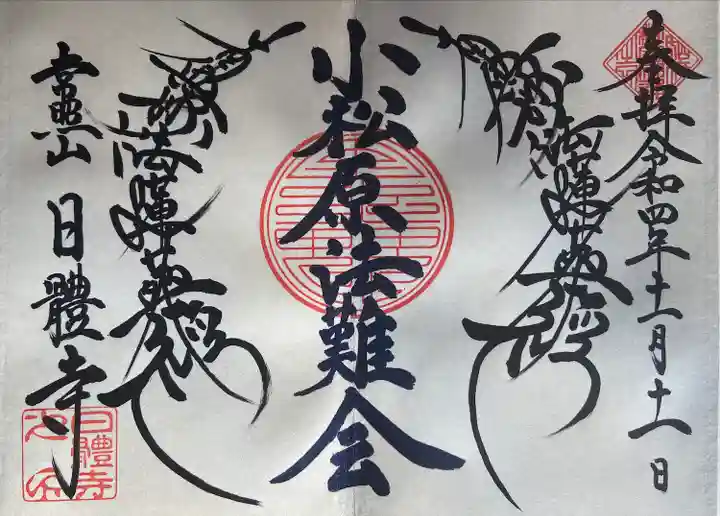 奉拝 令和四年十一月十一日
南無妙法蓮華経
小松原法難会
南無妙法蓮華経
日體寺
日體寺
之印